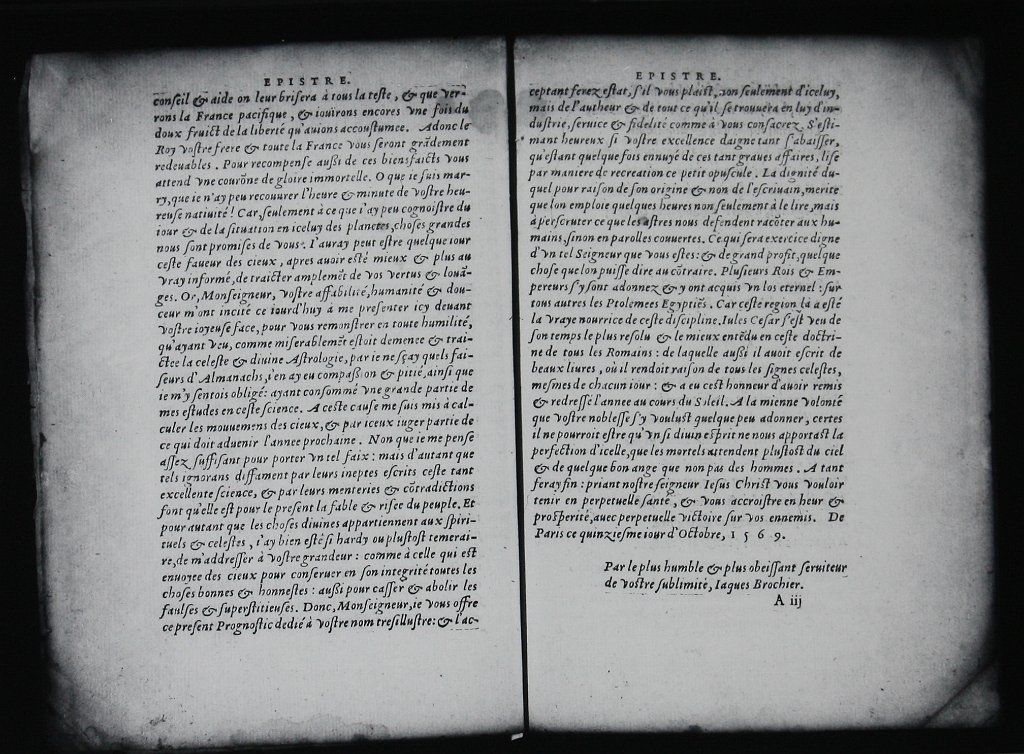 EPISTRE.
conseil & aide on leur brisera à tous la teste, & que ver-
rons la France pacifique, & iouirons encores vne fois du
doux fruict de la liberté qu'auions accoustumee. Adonc le
Roy vostre frere & toute la France vous seront grãdement
redeuables. Pour recompense aussi de ces biensfaicts vous
attend vne courõne de gloire immortelle. O que ie suis mar-
ry, que ie n'ay peu recouurer l'heure & minute de vostre heu-
reuse natiuité! Car, seulement à ce que i'ay peu cognoistre du
iour & de la situation en iceluy des planetes, choses grandes
nous sont promises de vous. I'auray peut estre quelque iour
ceste faueur des cieux, apres auoir esté mieux & plus au
vray informé, de traicter amplemẽt de vos vertus & louã-
ges. Or, Monseigneur, vostre affabilité, humanité & dou-
ceur m'ont incité ce iourd'huy à me presenter icy deuant
vostre ioyeuse face, pour vous remonstrer en toute humilité,
qu'ayant veu, comme miserablemẽt estoit demenee & trai-
ctee la celeste & diuine Astrologie, par ie ne sçay quels fai-
seurs d'Almanachs, i'en ay eu compassion & pitié, ainsi que
ie m'y sentois obligé: ayant consommé vne grande partie de
mes estudes en ceste science. A ceste cause me suis mis à cal-
culer les mouuemens des cieux, & par iceux iuger partie de
ce qui doit aduenir l'annee prochaine. Non que ie me pense
assez suffisant pour porter vn tel faix: mais d'autant que
tels ignorans diffament par leurs ineptes escrits ceste tant
excellente science, & par leurs menteries & cõtradictions
font qu'elle est pour le present la fable & risee du peuple. Et
pour autant que les choses diuines appartiennent aux spiri-
tuels & celestes, i'ay bien esté si hardy ou plustost temerai-
re, de m'addresser à vostre grandeur: comme à celle qui est
enuoyee des cieux pour conseruer en son integrité toutes les
choses bonnes & honnestes: aussi pour casser & abolir les
faulses & superstitieuses. Donc, Monseigneur, ie vous offre
ce present Prognostic dedié à vostre nom tresillustre: & l'ac-
EPISTRE.
ceptant ferez estat, s'il vous plaist, non seulement d'iceluy,
mais de l'autheur & de tout ce qu'il se trouuera en luy d'in-
dustrie, seruice & fidelité comme à vous consacrez. S'esti-
mant heureux si vostre excellence daigne tant s'abaisser,
qu'estant quelque fois ennuyé de ces tant graues affaires, lise
par maniere de recreation ce petit opuscule. La dignité du-
quel pour raison de son origine & non de l'escriuain, merite
que lon emploie quelques heures non seulement à le lire, mais
à perscruter ce que les astres nous defendent racõter aux hu-
mains, sinon en parolles couuertes. Ce qui sera exercice digne
d'vn tel Seigneur que vous estes: & de grand profit, quelque
chose que lon puisse dire au cõtraire. Plusieurs Rois & Em-
pereurs s'y sont adonnez & y ont acquis vn los eternel: sur
tous autres les Ptolemees Egyptiẽs. Car ceste region là a esté
la vraye nourrice de ceste discipline. Iules Cesar s'est veu de
son temps le plus resolu & le mieux entẽdu en ceste doctri-
ne de tous les Romains: de laquelle aussi il auoit escrit de
beaux liures, où il rendoit raison de tous les signes celestes,
mesmes de chacun iour: & a eu cest honneur d'auoir remis
& redressé l'annee au cours du Soleil. A la mienne volonté
que vostre noblesse s'y voulust quelque peu adonner, certes
il ne pourroit estre qu'vn si diuin esprit ne nous apportast la
perfection d'icelle, que les mortels attendent plustost du ciel
& de quelque bon ange que non pas des hommes. A tant
feray fin: priant nostre seigneur Iesus Christ vous vouloir
tenir en perpetuelle santé, & vous accroistre en heur &
prosperité, auec perpetuelle victoire sur vos ennemis. De
Paris ce quinziesme iour d'Octobre, 1569.
Par le plus humble & plus obeissant seruiteur
de vostre sublimité, Iaques Brochier.
A iij